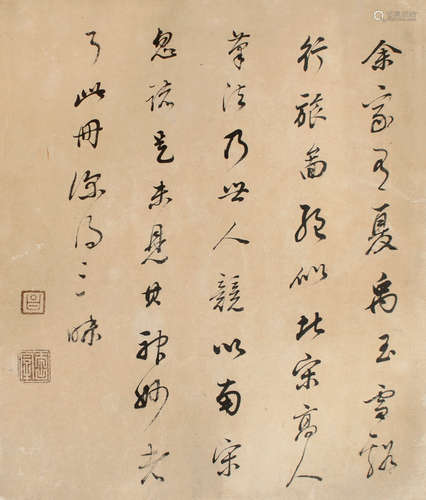 余家有夏禹玉雪谿
行旅圖絕似北宋高人
筆法乃世人競以南宋
忽諸是未見其神妙者
了此冊深得三昧